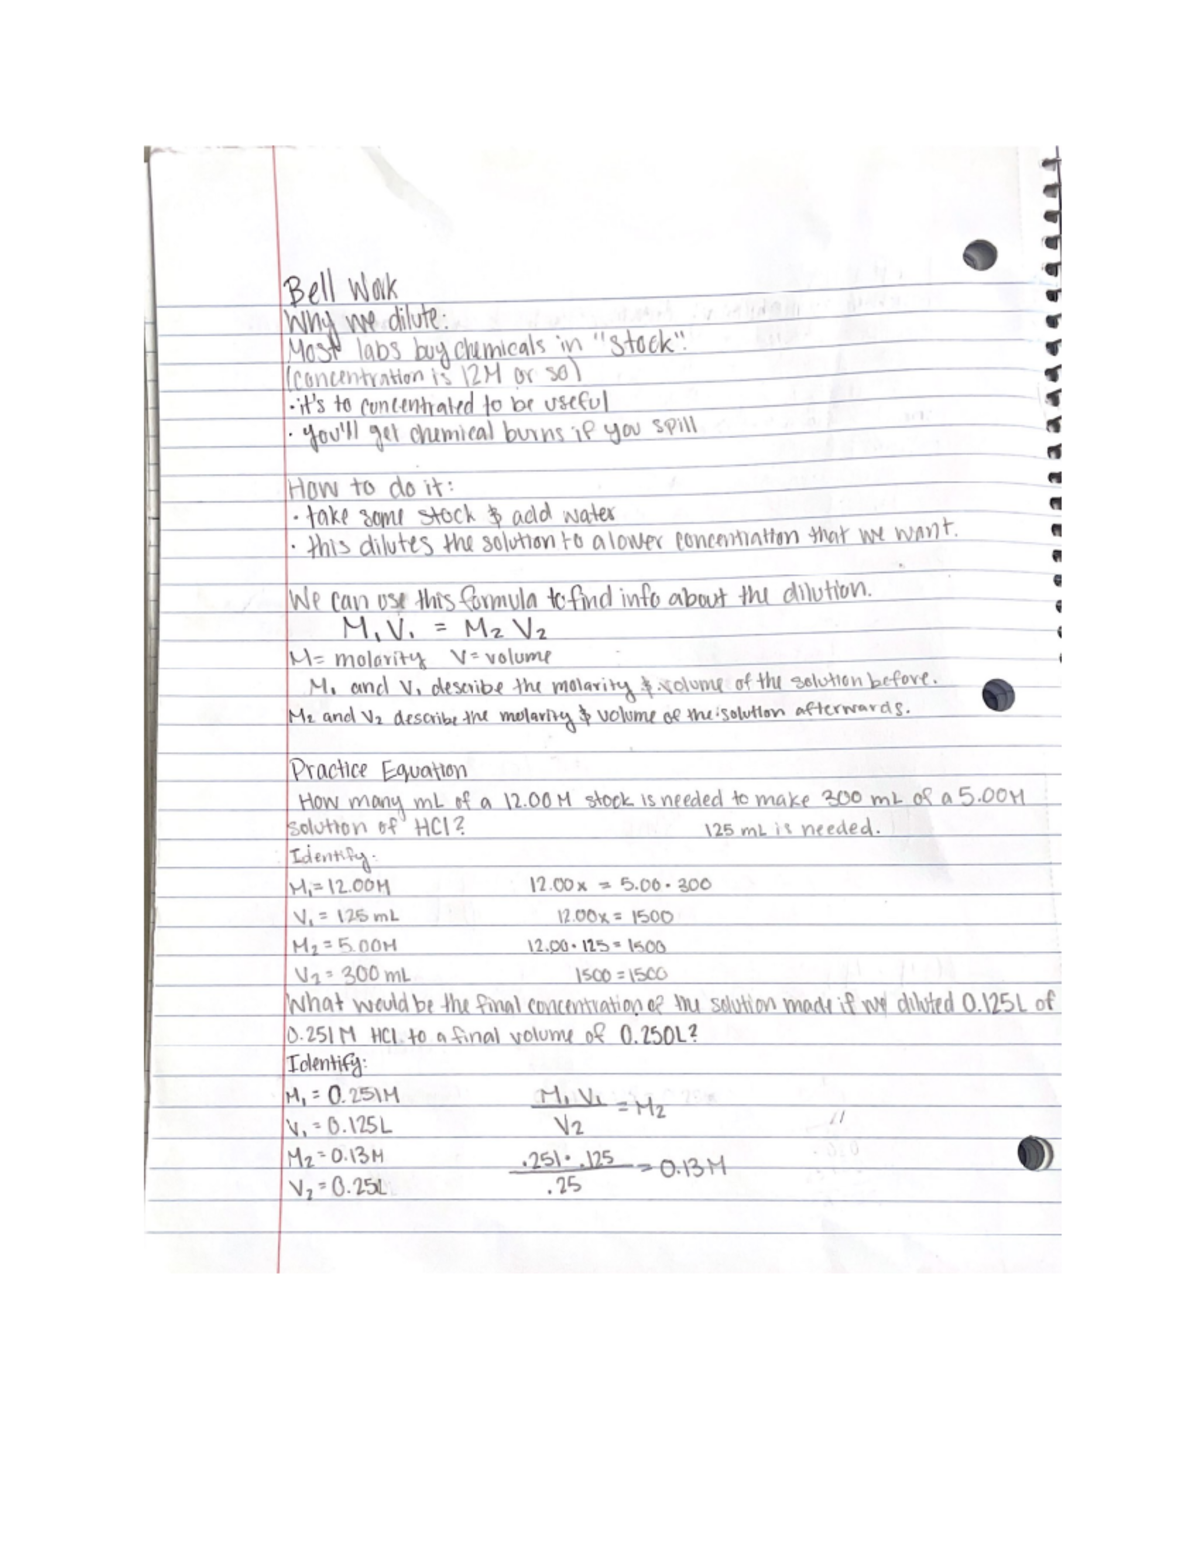 Bell Work
Why we dilute:
Most labs buy chemicals in "stock".
(concentration is 12M or so)
• it's to concentrated to be useful
• you'll get chemical burns if you spill
How to do it:
• take some stock & add water
• this dilutes the solution to a lower concentration that we want.
We can use this formula to find info about the dilution.
M₁V₁ = M₂V₂
M= molarity V= volume
M₁ and V₁ describe the molarity & volume of the solution before.
M₂ and V₂ describe the molarity & volume of the solution afterwards.
Practice Equation
How many mL of a 12.00M stock is needed to make 300 mL of a 5.00M
solution of HCl? 125 mL is needed.
Identify:
M₁= 12.00M 12.00x = 5.00 • 300
V₁ = 125 mL 12.00x = 1500
M₂ = 5.00M 12.00 • 125 = 1500
V₂ = 300 mL 1500 = 1500
What would be the final concentration of the solution made if we diluted 0.125L of
0.251M HCl to a final volume of 0.250L?
Identify:
M₁ = 0.251M M₁V₁/V₂ = M₂
V₁ = 0.125L
M₂ = 0.13M .251 • .125/.25 = 0.13M
V₂ = 0.25L